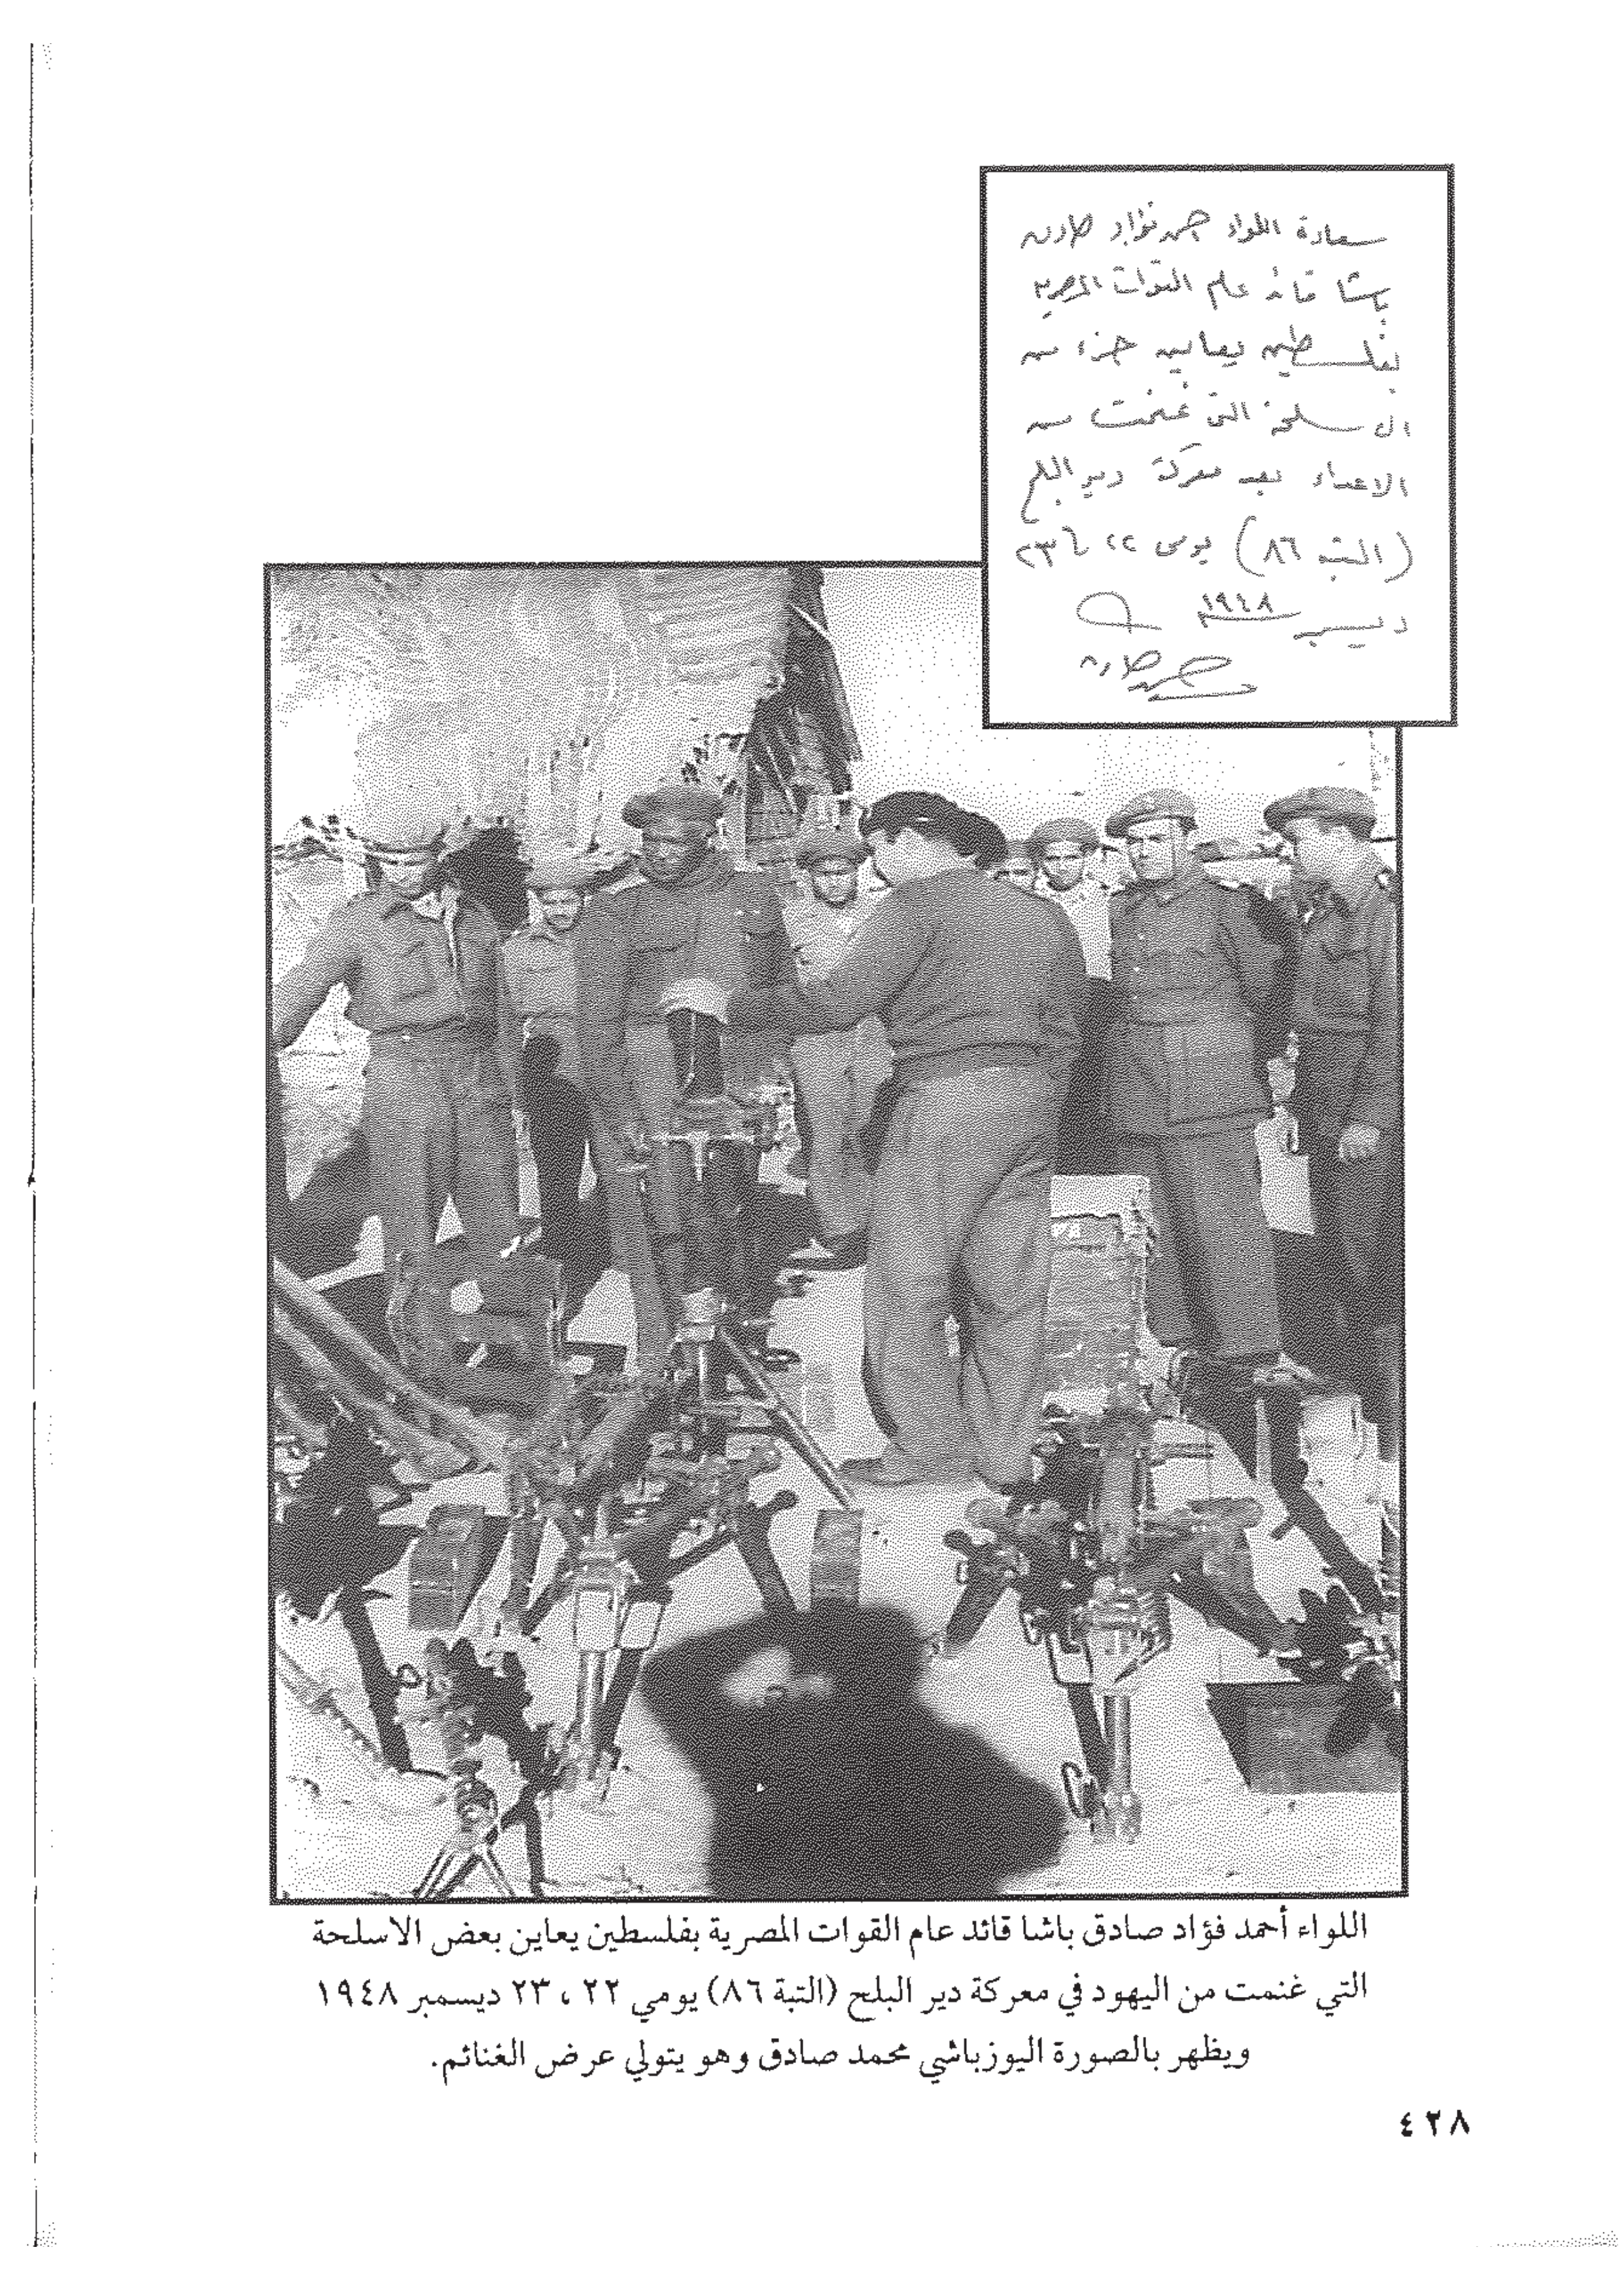 سعادة اللواء احمد فؤاد صادق
باشا قائد عام القوات المصرية
بفلسطين يعاين جزء من
الاسلحة التى غنمت من
الاعداء بعد معركة دير البلح
(التبه ٨٦) يومى ٢٢ ٢٣
ديسمبر ١٩٤٨
صادق
اللواء أحمد فؤاد صادق باشا قائد عام القوات المصرية بفلسطين يعاين بعض الاسلحة
التي غنمت من اليهود في معركة دير البلح (التبة ٨٦) يومي ٢٢ ، ٢٣ ديسمبر ١٩٤٨
ويظهر بالصورة اليوزباشي محمد صادق وهو يتولي عرض الغنائم.
٤٢٨